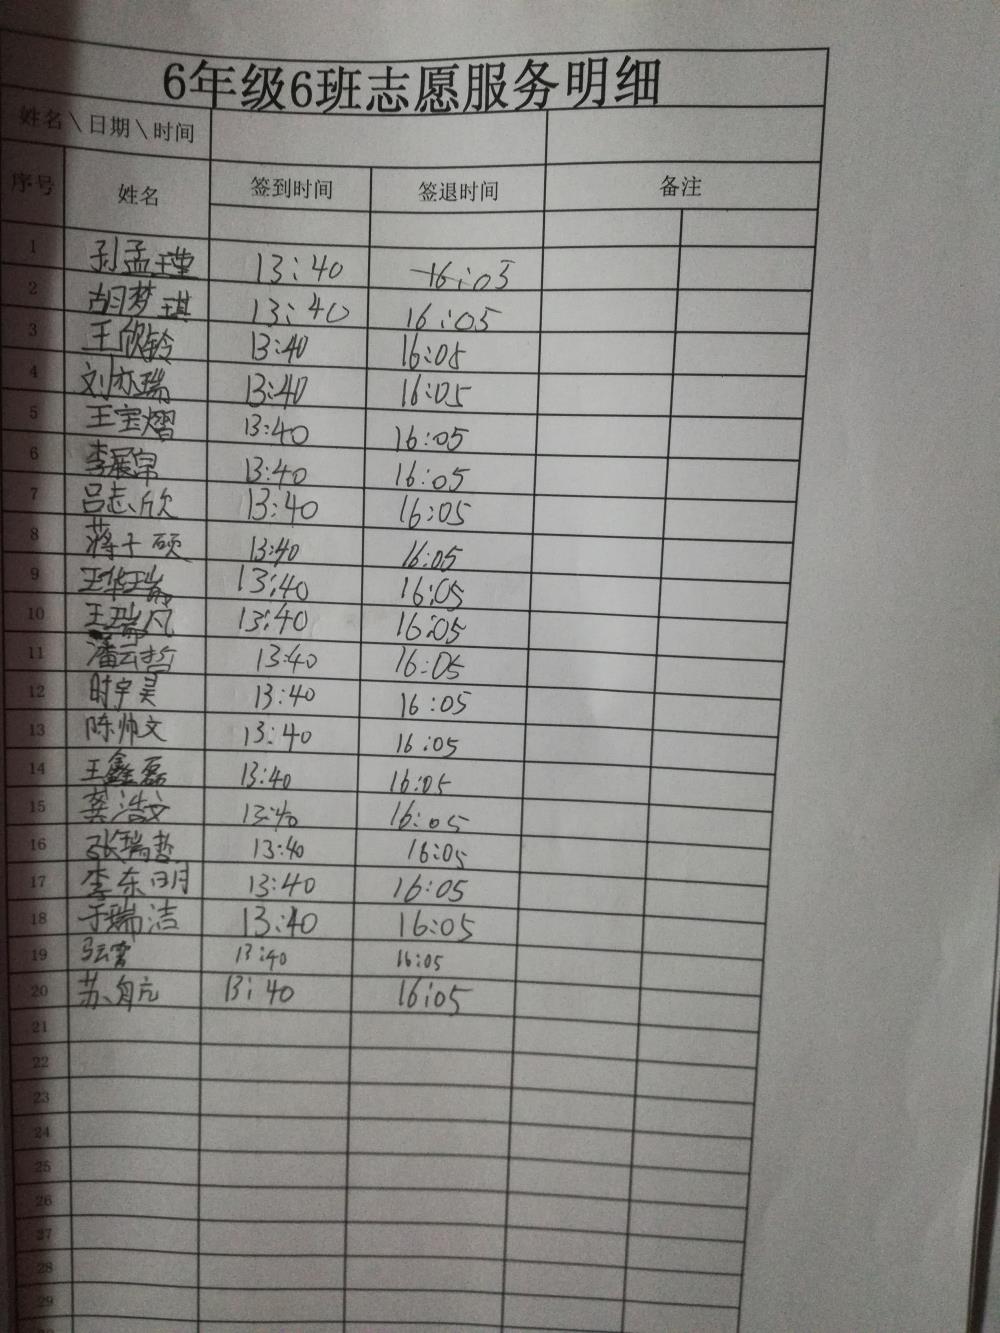 6年级6班志愿服务明细
姓名\日期\时间
序号 姓名 签到时间 签退时间 备注
1 孙孟瑾 13:40 16:05
2 胡梦琪 13:40 16:05
3 王欣铃 13:40 16:05
4 刘亦瑞 13:40 16:05
5 王宝熠 13:40 16:05
6 李展帛 13:40 16:05
7 吕志欣 13:40 16:05
8 蒋千硕 13:40 16:05
9 王华瑞 13:40 16:05
10 王瑞凡 13:40 16:05
11 潘云哲 13:40 16:05
12 时宇昊 13:40 16:05
13 陈帅文 13:40 16:05
14 王鑫磊 13:40 16:05
15 龚浩文 13:40 16:05
16 张瑞哲 13:40 16:05
17 李东明 13:40 16:05
18 于瑞洁 13:40 16:05
19 13:40 16:05
20 苏航 13:40 16:05
21
22
23
24
25
26
27
28
29